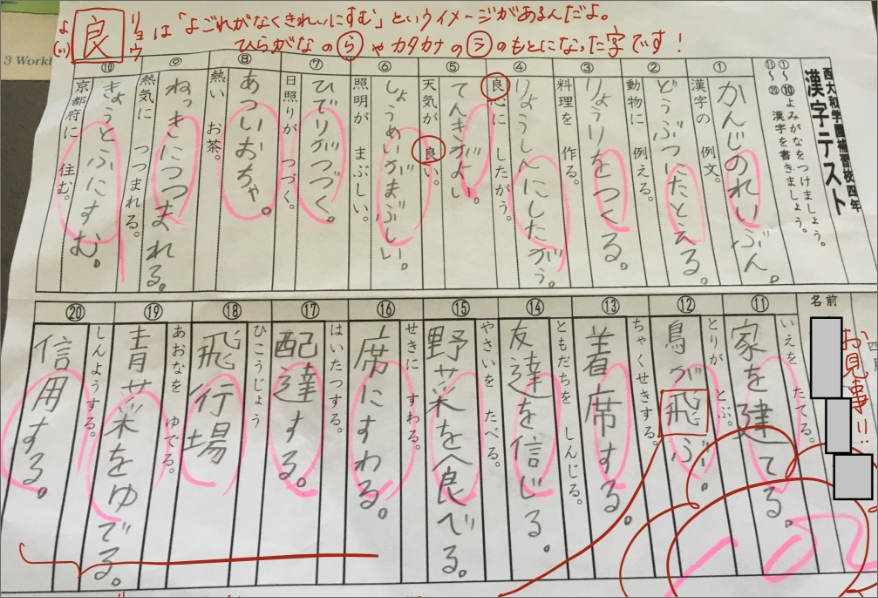 良 リョウ よ(い) は「よごれがなくきれいにすむ」というイメージがあるんだよ。
ひらがなの ら やカタカナの ラ のもとになった字です!
3 Workb
西大和学園補習校四年
漢字テスト
①~⑩よみがなをつけましょう。
⑪~⑳漢字を書きましょう。
①
漢字の 例文。
かんじのれいぶん。
②
動物に 例える。
どうぶつにたとえる。
③
料理を 作る。
りょうりをつくる。
④
良心に したがう。
りょうしんにしたがう。
⑤
天気が 良い。
てんきがよい。
⑥
照明が まぶしい。
しょうめいがまぶしい。
⑦
日照りが つづく。
ひでりがつづく。
⑧
熱い お茶。
あついおちゃ。
⑨
熱気に つつまれる。
ねっきにつつまれる。
⑩
京都府に 住む。
きょうとふにすむ。
名前
お見事!!
⑪
いえを たてる。
家を建てる。
⑫
とりが とぶ。
鳥が飛ぶ。
⑬
ちゃくせきする。
着席する。
⑭
ともだちを しんじる。
友達を信じる。
⑮
やさいを たべる。
野菜を食べる。
⑯
せきに すわる。
席にすわる。
⑰
はいたつする。
配達する。
⑱
ひこうじょう
飛行場
⑲
あおなを ゆでる。
青菜をゆでる。
⑳
しんようする。
信用する。